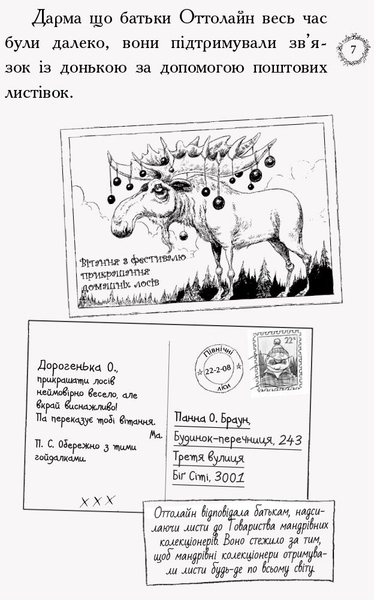 Дарма що батьки Оттолайн весь час
були далеко, вони підтримували зв’я-
зок із донькою за допомогою поштових
листівок.
7
Вітання з фестивалю
прикрашання
домашніх лосів
Дорогенька О.,
прикрашати лосів
неймовірно весело, але
вкрай виснажливо!
Па переказує тобі вітання.
Ма.
П. С. Обережно з тими
гойдалками.
X X X
Північні
22-2-08
22
Панна О. Браун,
Будинок-перечниця, 243
Третя вулиця
Біг Сіті, 3001
Оттолайн відповідала батькам, надси-
лаючи листи до Товариства мандрівних
колекціонерів. Воно стежило за тим,
щоб мандрівні колекціонери отримува-
ли листи будь-де по всьому світу.